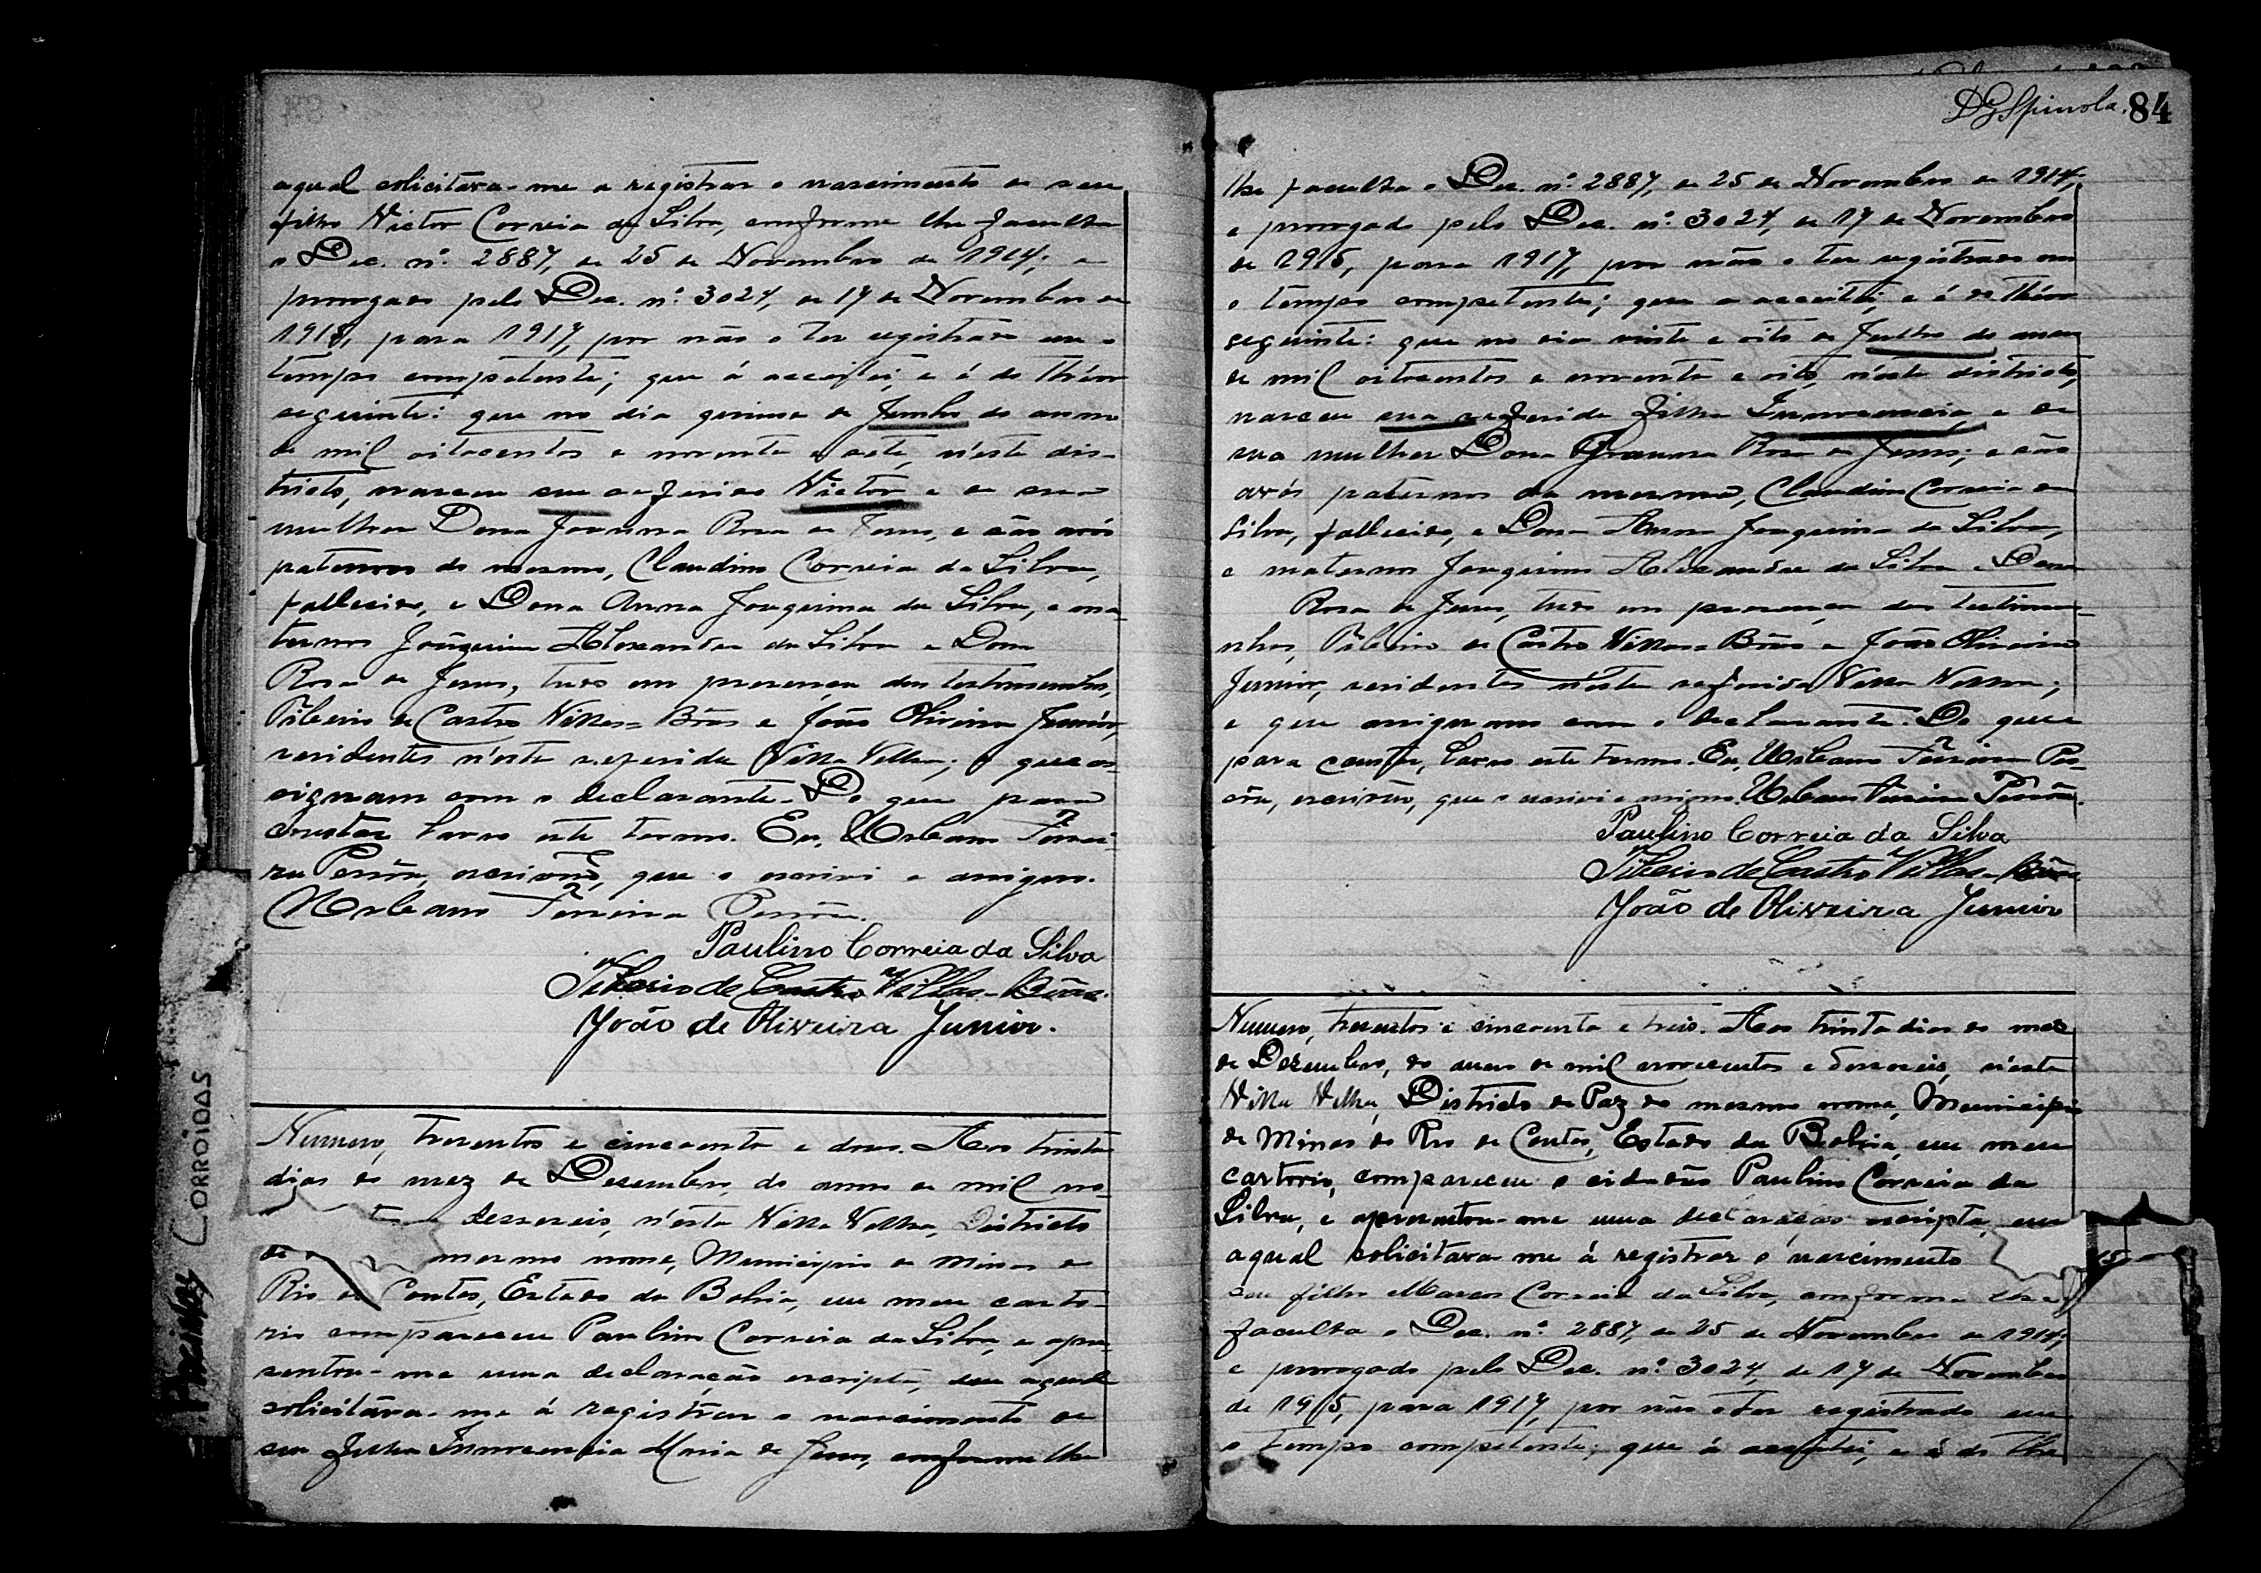 aqual solicitava-me a registrar o nascimento de seu
filho Victor Correia da Silva, conforme lhe faculta
o Dec. nº 2887, de 25 de Novembro de 1914, e
prorogado pelo Dec. nº 3024, de 17 de Novembro de
1915, para 1917, por não o ter registrado em o
tempo competente; que á acceitei, e é do théor
seguinte: que no dia quinse de Junho do anno
de mil oitocentos e noventa e sete, n'este dis-
tricto, nasceu seu referido Victor e de sua
mulher Dona Joanna Rosa de Jesus, e são avós
paternos do mesmo, Claudino Correia da Silva,
fallecido, e Dona Anna Joaquina da Silva, e ma-
ternos Joaquim Alexandre da Silva e Dona
Rosa de Jesus, tudo em presença das testemunhas,
Tiberio de Castro Villas-Bôas e João Oliveira Junior,
residentes n'esta referida Villa Velha; e que as-
signam com o declarante. Do que para
constar lavro este termo. Eu, Urbano Ferrei-
ra Pessôa, escrivão, que o escrivi e assigno.
Urbano Ferreira Pessôa.
Paulino Correia da Silva
Tiberio de Castro Villas-Bôas.
João de Oliveira Junior.
Numero, tresentos e cincoenta e dous. Aos trinta
dias do mez de Dezembro, do anno de mil no-
desseseis, n'esta Villa Velha, Districto
de mesmo nome, Municipio de Minas do
Rio de Contas, Estado da Bahia, em meu carto-
rio compareceu Paulino Correia da Silva, e apre-
sentou-me uma declaração escripta, em aqual
solicitáva-me á registrar o nascimento de
sua filha Innocencia Maria de Jesus, conforme lhe
PAGINAS CORROIDAS
DGSpinola. 84
lhe faculta o Dec. nº 2887, de 25 de Novembro de 1914,
e prorogado pelo Dec. nº 3024, de 17 de Novembro
de 1915, para 1917, por não o ter registrado em
o tempo competente; que a acceitei, e é do théor
seguinte: que no dia vinte e oito de Julho do anno
de mil oitocentos e noventa e oito, n'este districto,
nasceu sua referida filha Innocencia, e de
sua mulher Dona Joanna Rosa de Jesus; e são
avós paternos da mesma, Claudino Correia da
Silva, fallecido, e Dona Anna Joaquina da Silva,
e maternos Joaquim Alexandre da Silva e Dona
Rosa de Jesus, tudo em presença das testimu-
nhas, Tiberio de Castro Villas-Bôas e João Oliveira
Junior, residentes n'esta referida Villa Velha;
e que assignam com o declarante. Do que
para constar, lavro este termo. Eu, Urbano Ferreira Pes-
sôa, escrivão, que o escrivi e assigno. Urbano Ferreira Pessôa.
Paulino Correia da Silva
Tiberio de Castro Villas-Bôas
João de Oliveira Junior
Numero, tresentos e cincoenta e treis. Aos trinta dias do mez
de Dezembro, do anno de mil novecentos e desseseis, n'esta
Villa Velha, Districto de Paz do mesmo nome, Municipio
de Minas do Rio de Contas, Estado da Bahia, em meu
cartorio, compareceu o cidadão Paulino Correia da
Silva, e apresentou-me uma declaração escripta, em
aqual solicitava-me á registrar o nascimento
seu filho Marcos Correia da Silva, conforme lhe
faculta o Dec. nº 2887, de 25 de Novembro de 1914,
e prorogado pelo Dec. nº 3024, de 17 de Novembro
de 1915, para 1917, por não o ter registrado em
o tempo competente; que á acceitei, e é do the